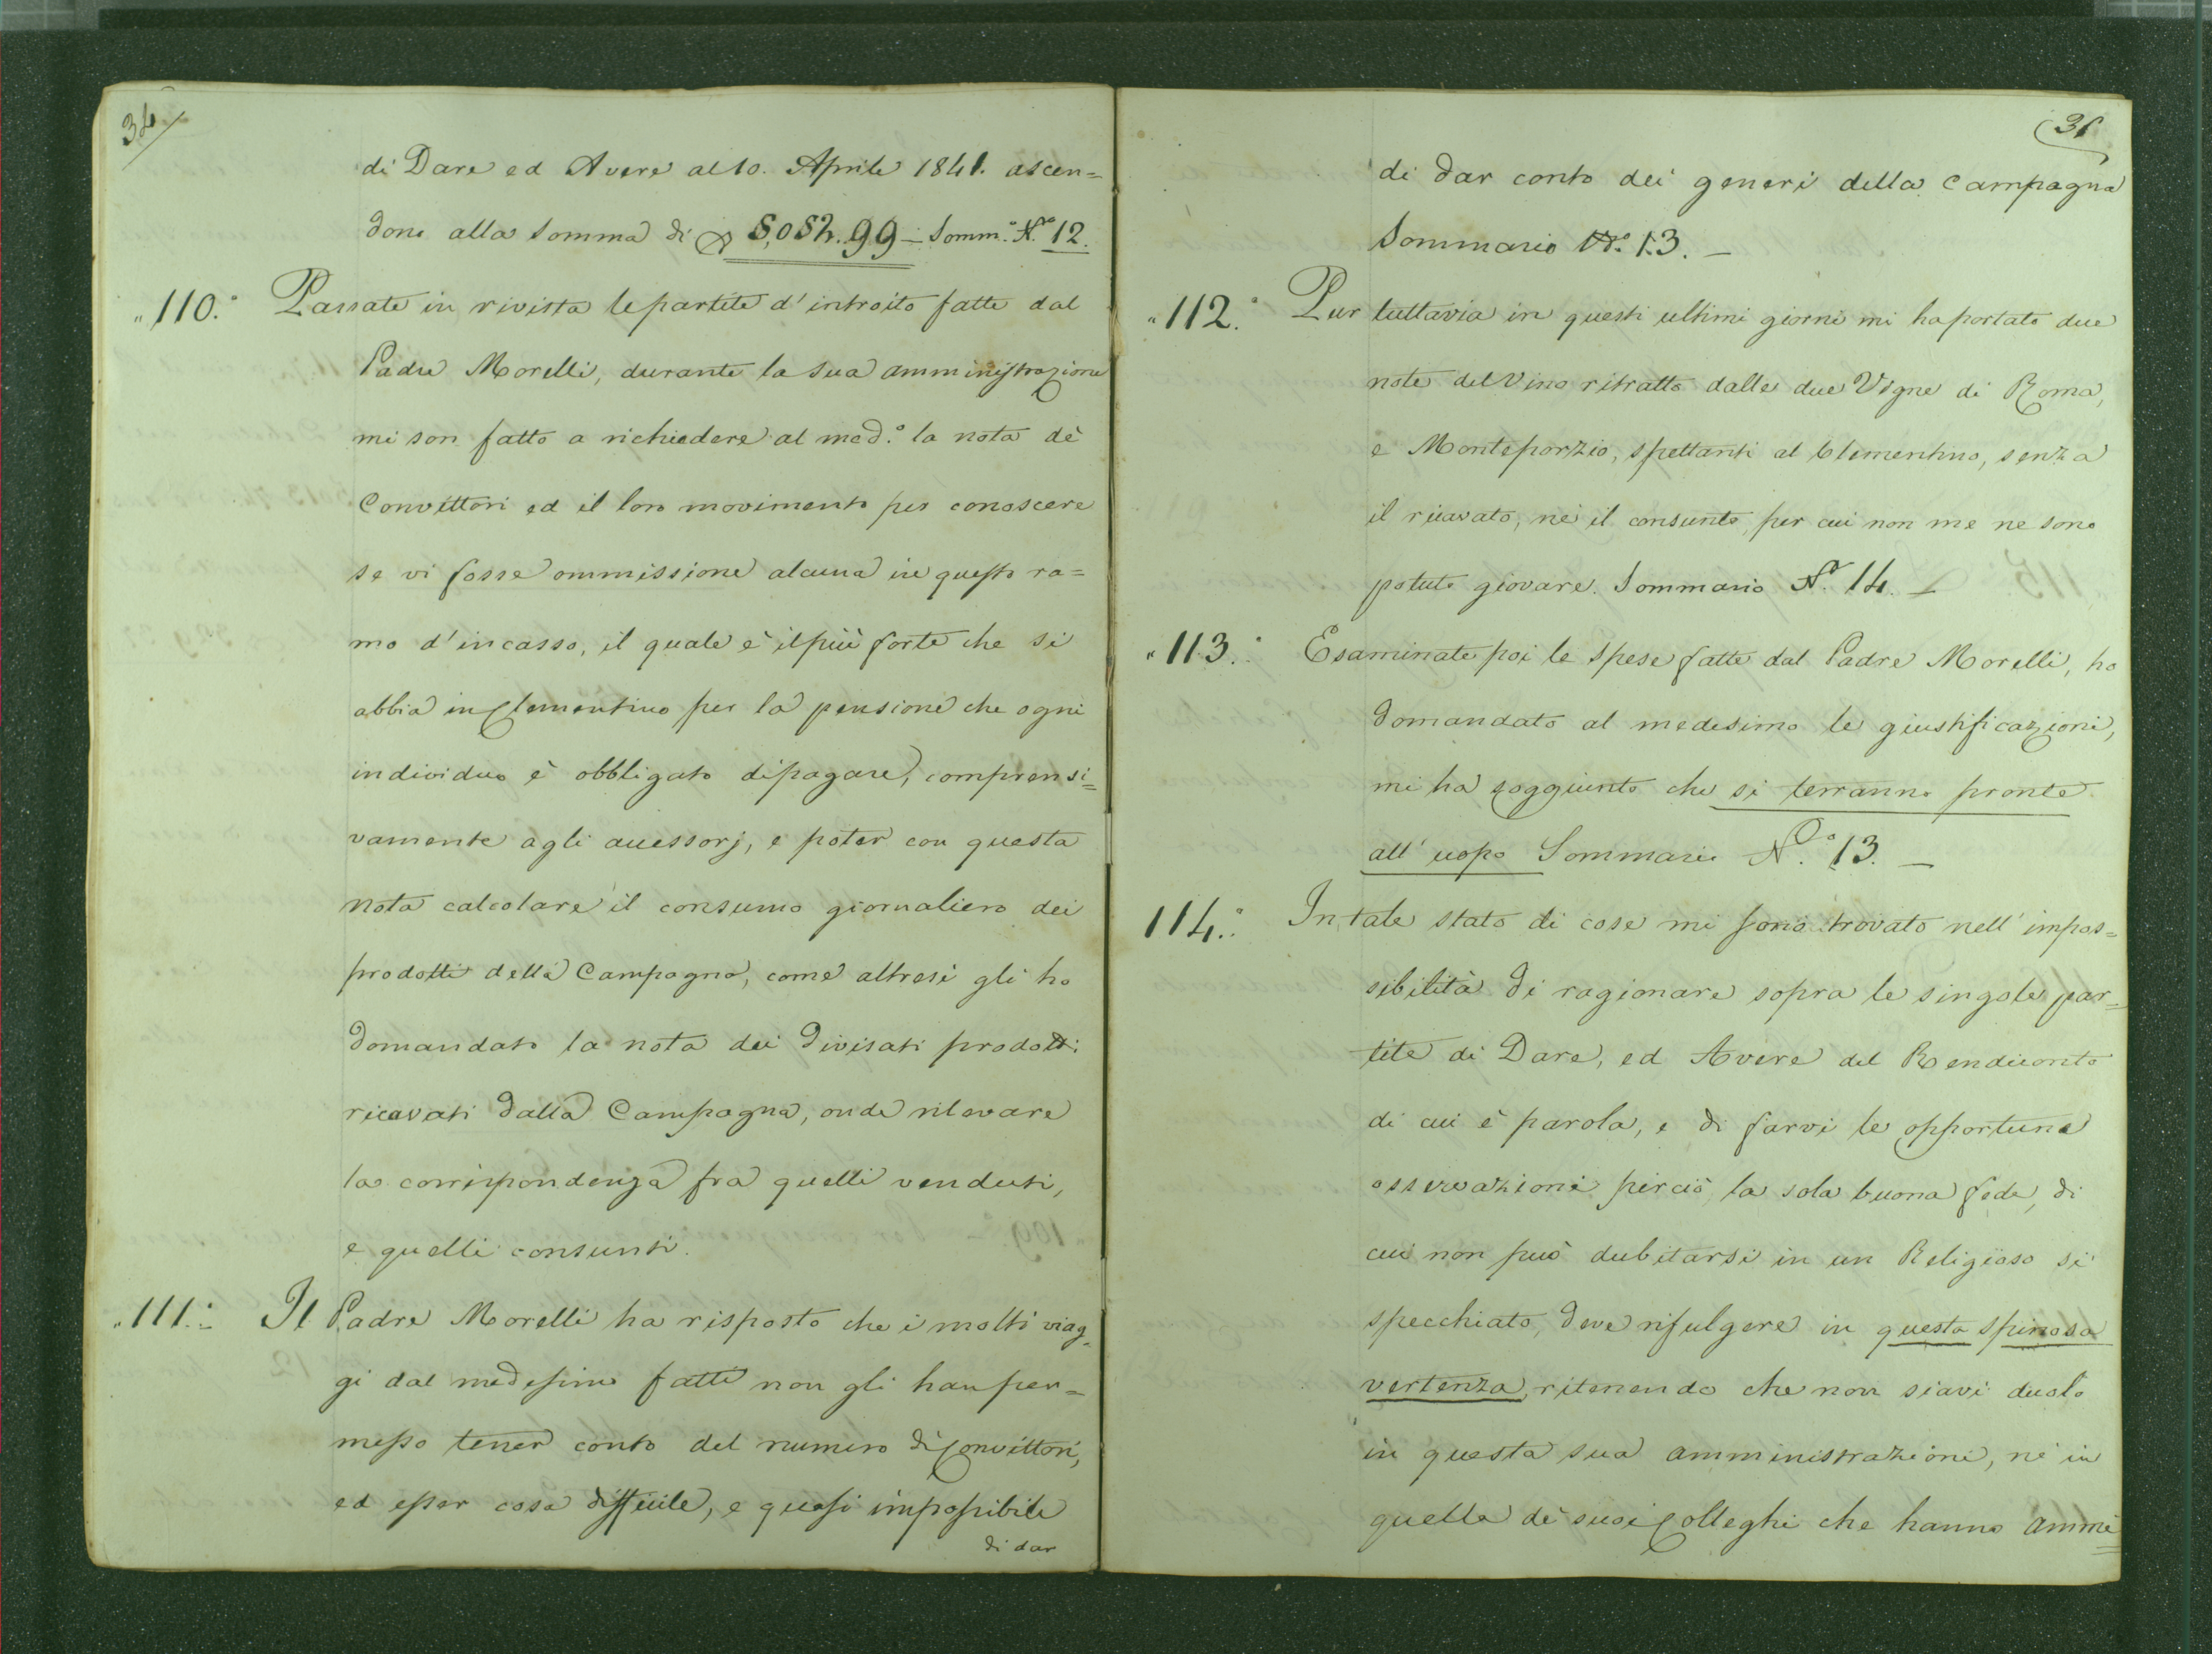 34
di Dare ed Avere al 10. Aprile 1841. ascen=
dono alla Somma di 5,052.99 – Somm.º N.º 12.
"110.º Passate in rivista le partite d'introito fatte dal
Padre Morelli, durante la sua amministrazione
mi son fatto a richiedere al med.º la nota dè
Convittori ed il loro movimento per conoscere
se vi fosse ommissione alcuna in questo ra=
mo d'incasso, il quale è il più forte che si
abbia in Clementino per la pensione che ogni
individuo è obbligato di pagare, comprensi=
vamente agli accessorj, e poter con questa
nota calcolare il consumo giornaliero dei
prodotti della Campagna, come altresì gli ho
domandato la nota dei divisati prodotti
ricavati dalla Campagna, onde rilevare
la corrispondenza fra quelli venduti,
e quelli consunti.
"111.º Il Padre Morelli ha risposto che i molti viag=
gi dal medesimo fatti non gli han per=
messo tener conto del numero di Convittori,
ed esser cosa difficile, e quasi impossibile
di dar
di dar conto dei generi della Campagna
Sommario N.º 13. –
"112.º Pur tuttavia in questi ultimi giorni mi ha portato due
note del Vino ritratto dalle due Vigne di Roma,
e Monteporzio, spettanti al Clementino, senza
il ricavato, nè il consunto, per cui non me ne sono
potuto giovare. Sommario N.º 14. –
"113.º Esaminate poi le spese fatte dal Padre Morelli, ho
domandato al medesimo le giustificazioni,
mi ha soggiunto che si terranno pronte
all'uopo Sommario N.º 13. –
114.º In tale stato di cose mi sono trovato nell'impos=
sibilità di ragionare sopra le singole par=
tite di Dare, ed Avere del Rendiconto
di cui è parola, e di farvi le opportune
osservazioni perciò, la sola buona fede, di
cui non può dubitarsi in un Religioso sì
specchiato, deve rifulgere in questa spinosa
vertenza, ritenendo che non siavi duolo
in questa sua amministrazione, nè in
quella dè suoi Colleghi che hanno ammi=